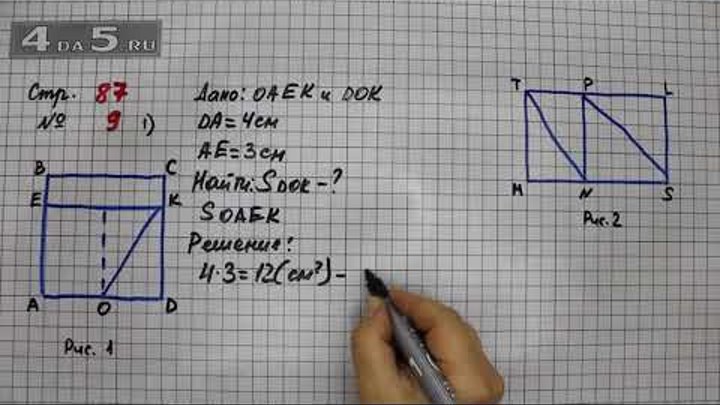 4 DA 5.RU
Стр. 87
№ 9 1)
Дано: OAEK и DOK
DA=4см
AE=3см
Найти: SDOK-?
SOAEK
Решение:
4·3=12(см²)-
B C
E K
A O D
Рис. 1
T P L
M N S
Рис. 2